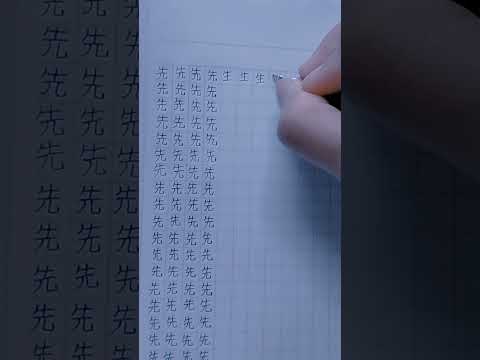 先先先先生生生
先先先先
先先先先
先先先先
先先先先
先先先先
先先先先
先先先先
先先先先
先先先先
先先先先
先先先先
先先先先
先先先先
先先先先
先先先先
先先先先
先先先先